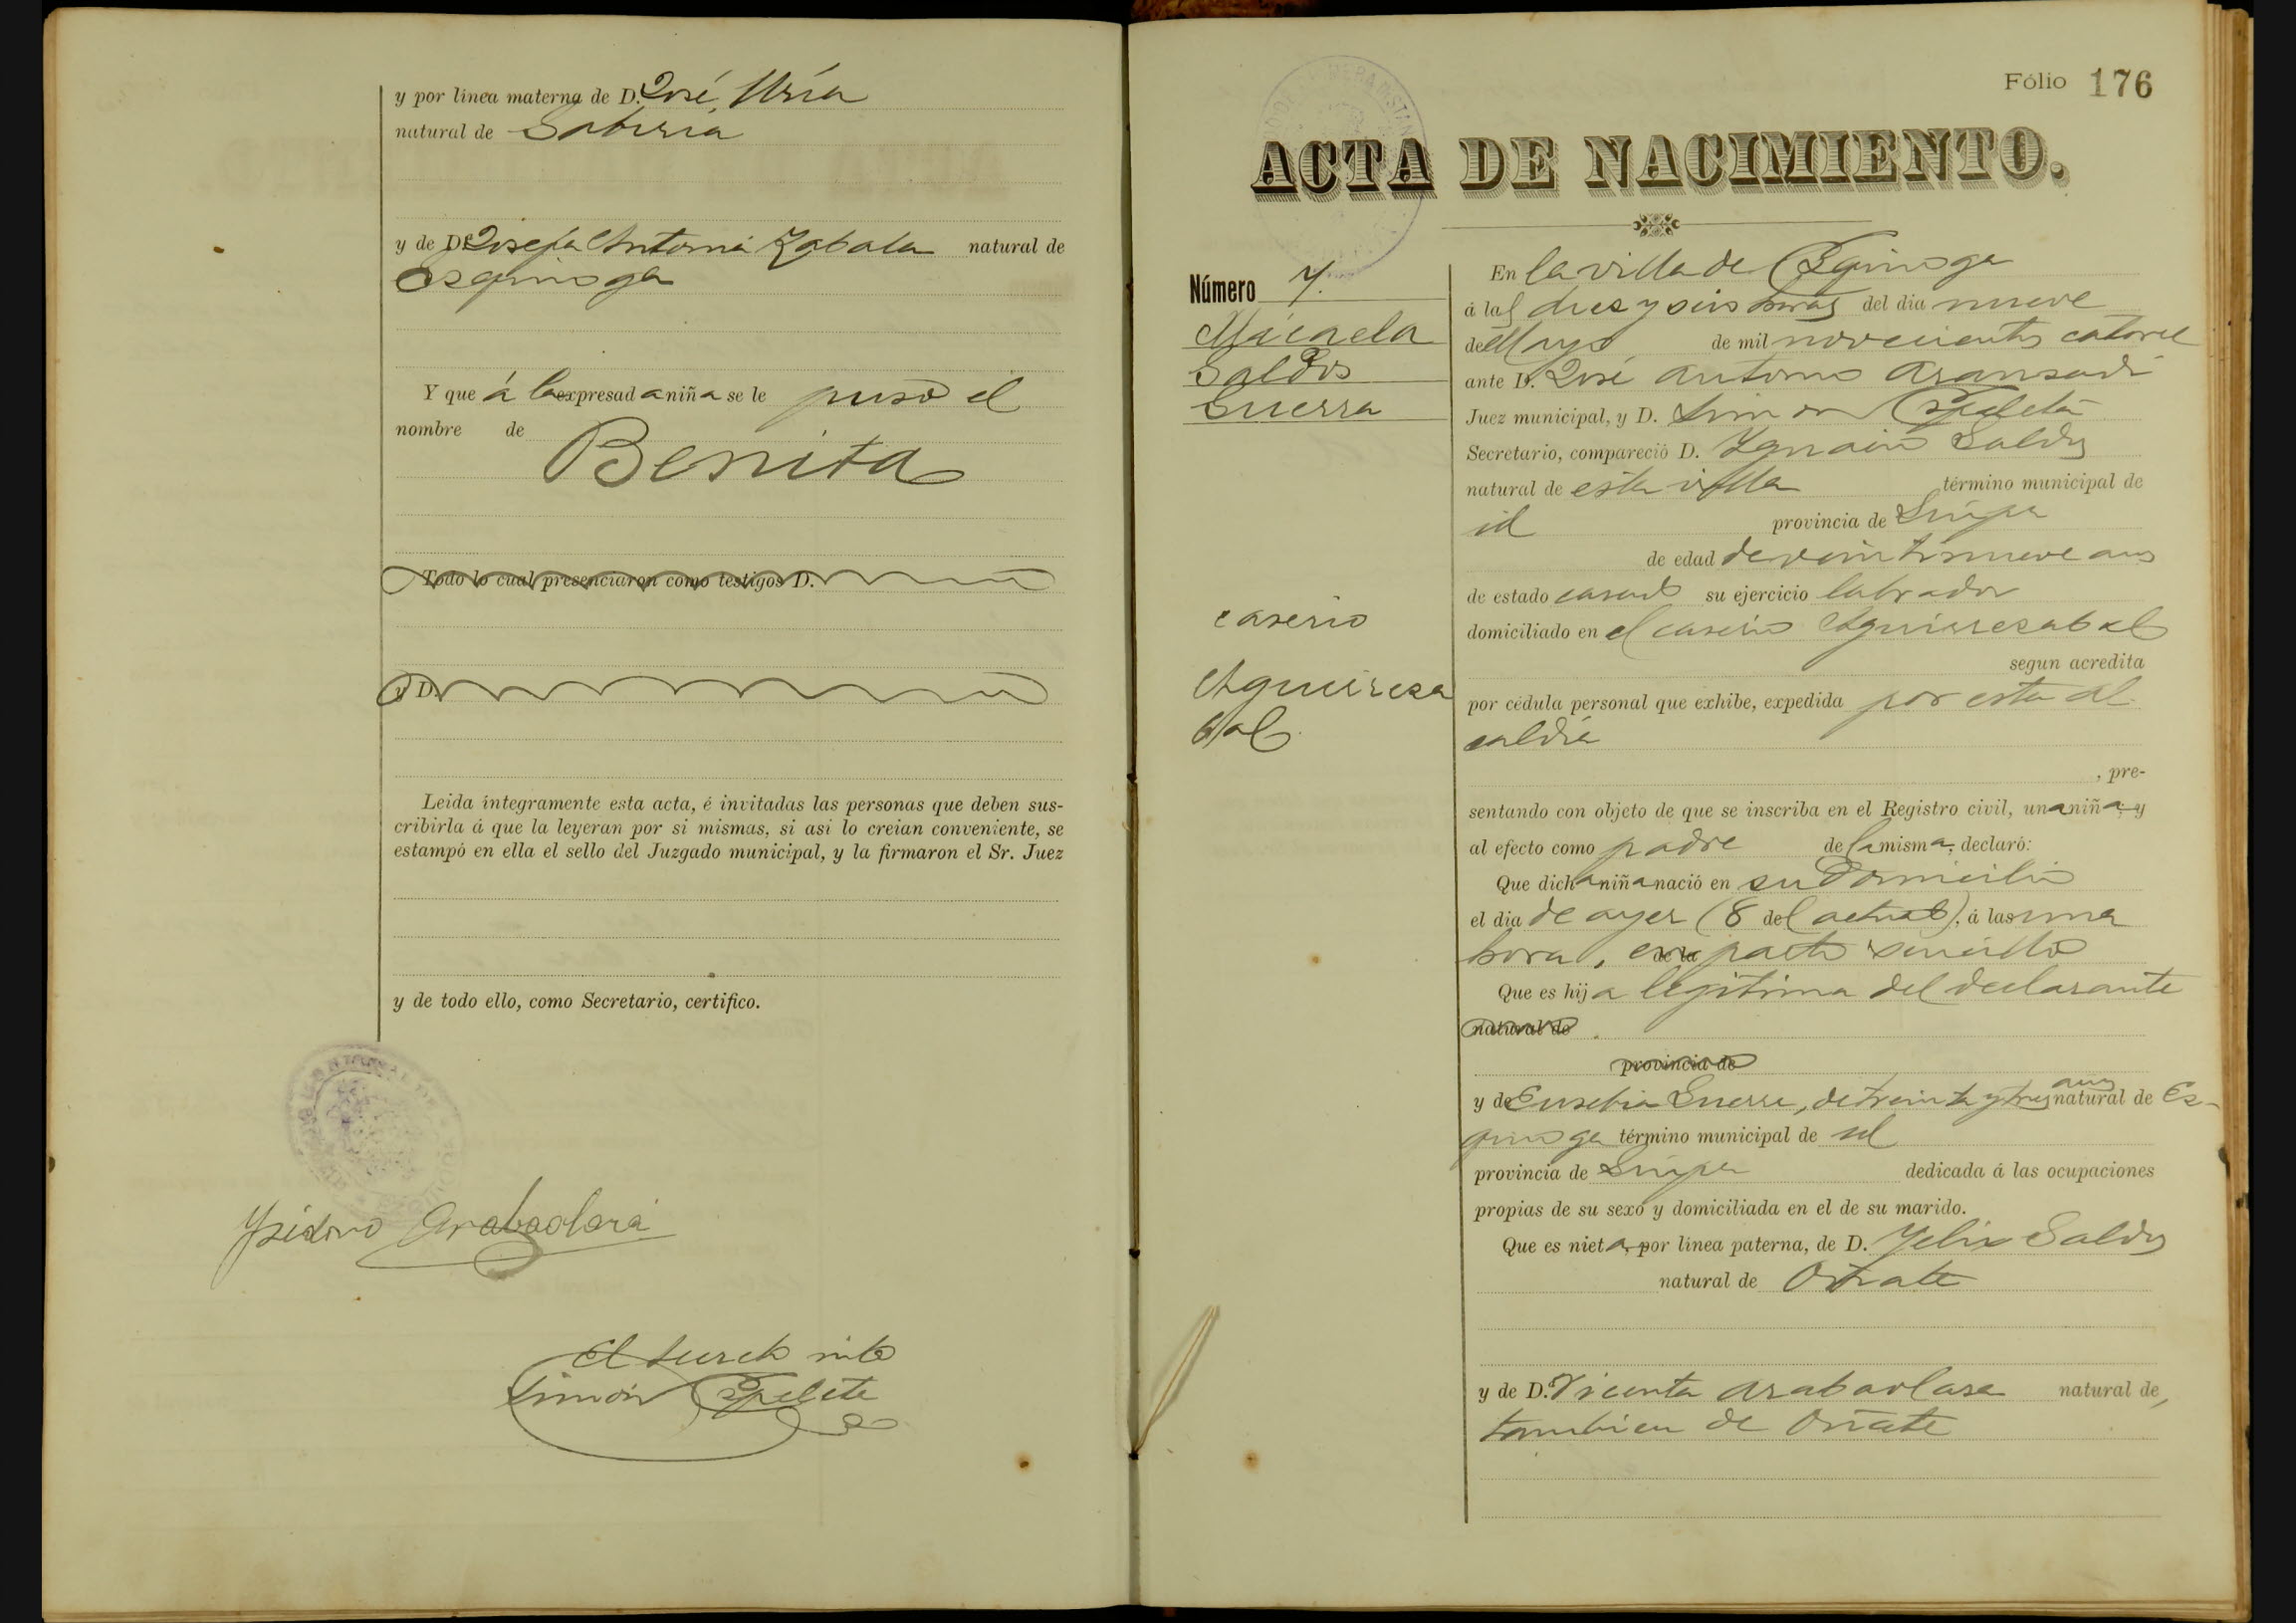 y por línea materna de D. José Uría
natural de Gabiria
y de D.ª Josefa Antonia Zabala natural de
Esquioga
Y que á la expresada niña se le puso el
nombre de
Benita
Todo lo cual presenciaron como testigos D.
y D.
Leida íntegramente esta acta, é invitadas las personas que deben sus-
cribirla á que la leyeran por si mismas, si así lo creian conveniente, se
estampó en ella el sello del Juzgado municipal, y la firmaron el Sr. Juez
y de todo ello, como Secretario, certifico.
Ysidoro Arabaolaza
El Secreto into
Simón Ezpeleta
Fólio 176
ACTA DE NACIMIENTO.
Número 7.
Micaela
Saldos
Guerra
caserio
Aguirreza
bal
En la villa de Ezquioga
á las diez y seis horas del dia nueve
de Mayo de mil novecientos catorce
ante D. José Antonio Aransadi
Juez municipal, y D. Simon Ezpeleta
Secretario, compareció D. Ygnacio Saldos
natural de esta villa término municipal de
id provincia de Guipa
de edad de veintinueve años
de estado casado su ejercicio labrador
domiciliado en el caserio Aguirrezabal
segun acredita
por cédula personal que exhibe, expedida por esta al
caldia
, pre-
sentando con objeto de que se inscriba en el Registro civil, una niña, y
al efecto como padre de la misma, declaró:
Que dicha niña nació en su domicilio
el dia de ayer (8 del actual), á las una
hora, en parto sencillo
Que es hija legítima del declarante
natural de
provincia de
y de Eusebia Guerra, de treinta y tres años natural de Ez-
quioga término municipal de id
provincia de Guipa dedicada á las ocupaciones
propias de su sexo y domiciliada en el de su marido.
Que es nieta, por línea paterna, de D. Felix Saldos
natural de Oñate
y de D.ª Vicenta Arabaolaza natural de,
tambien de Oñate